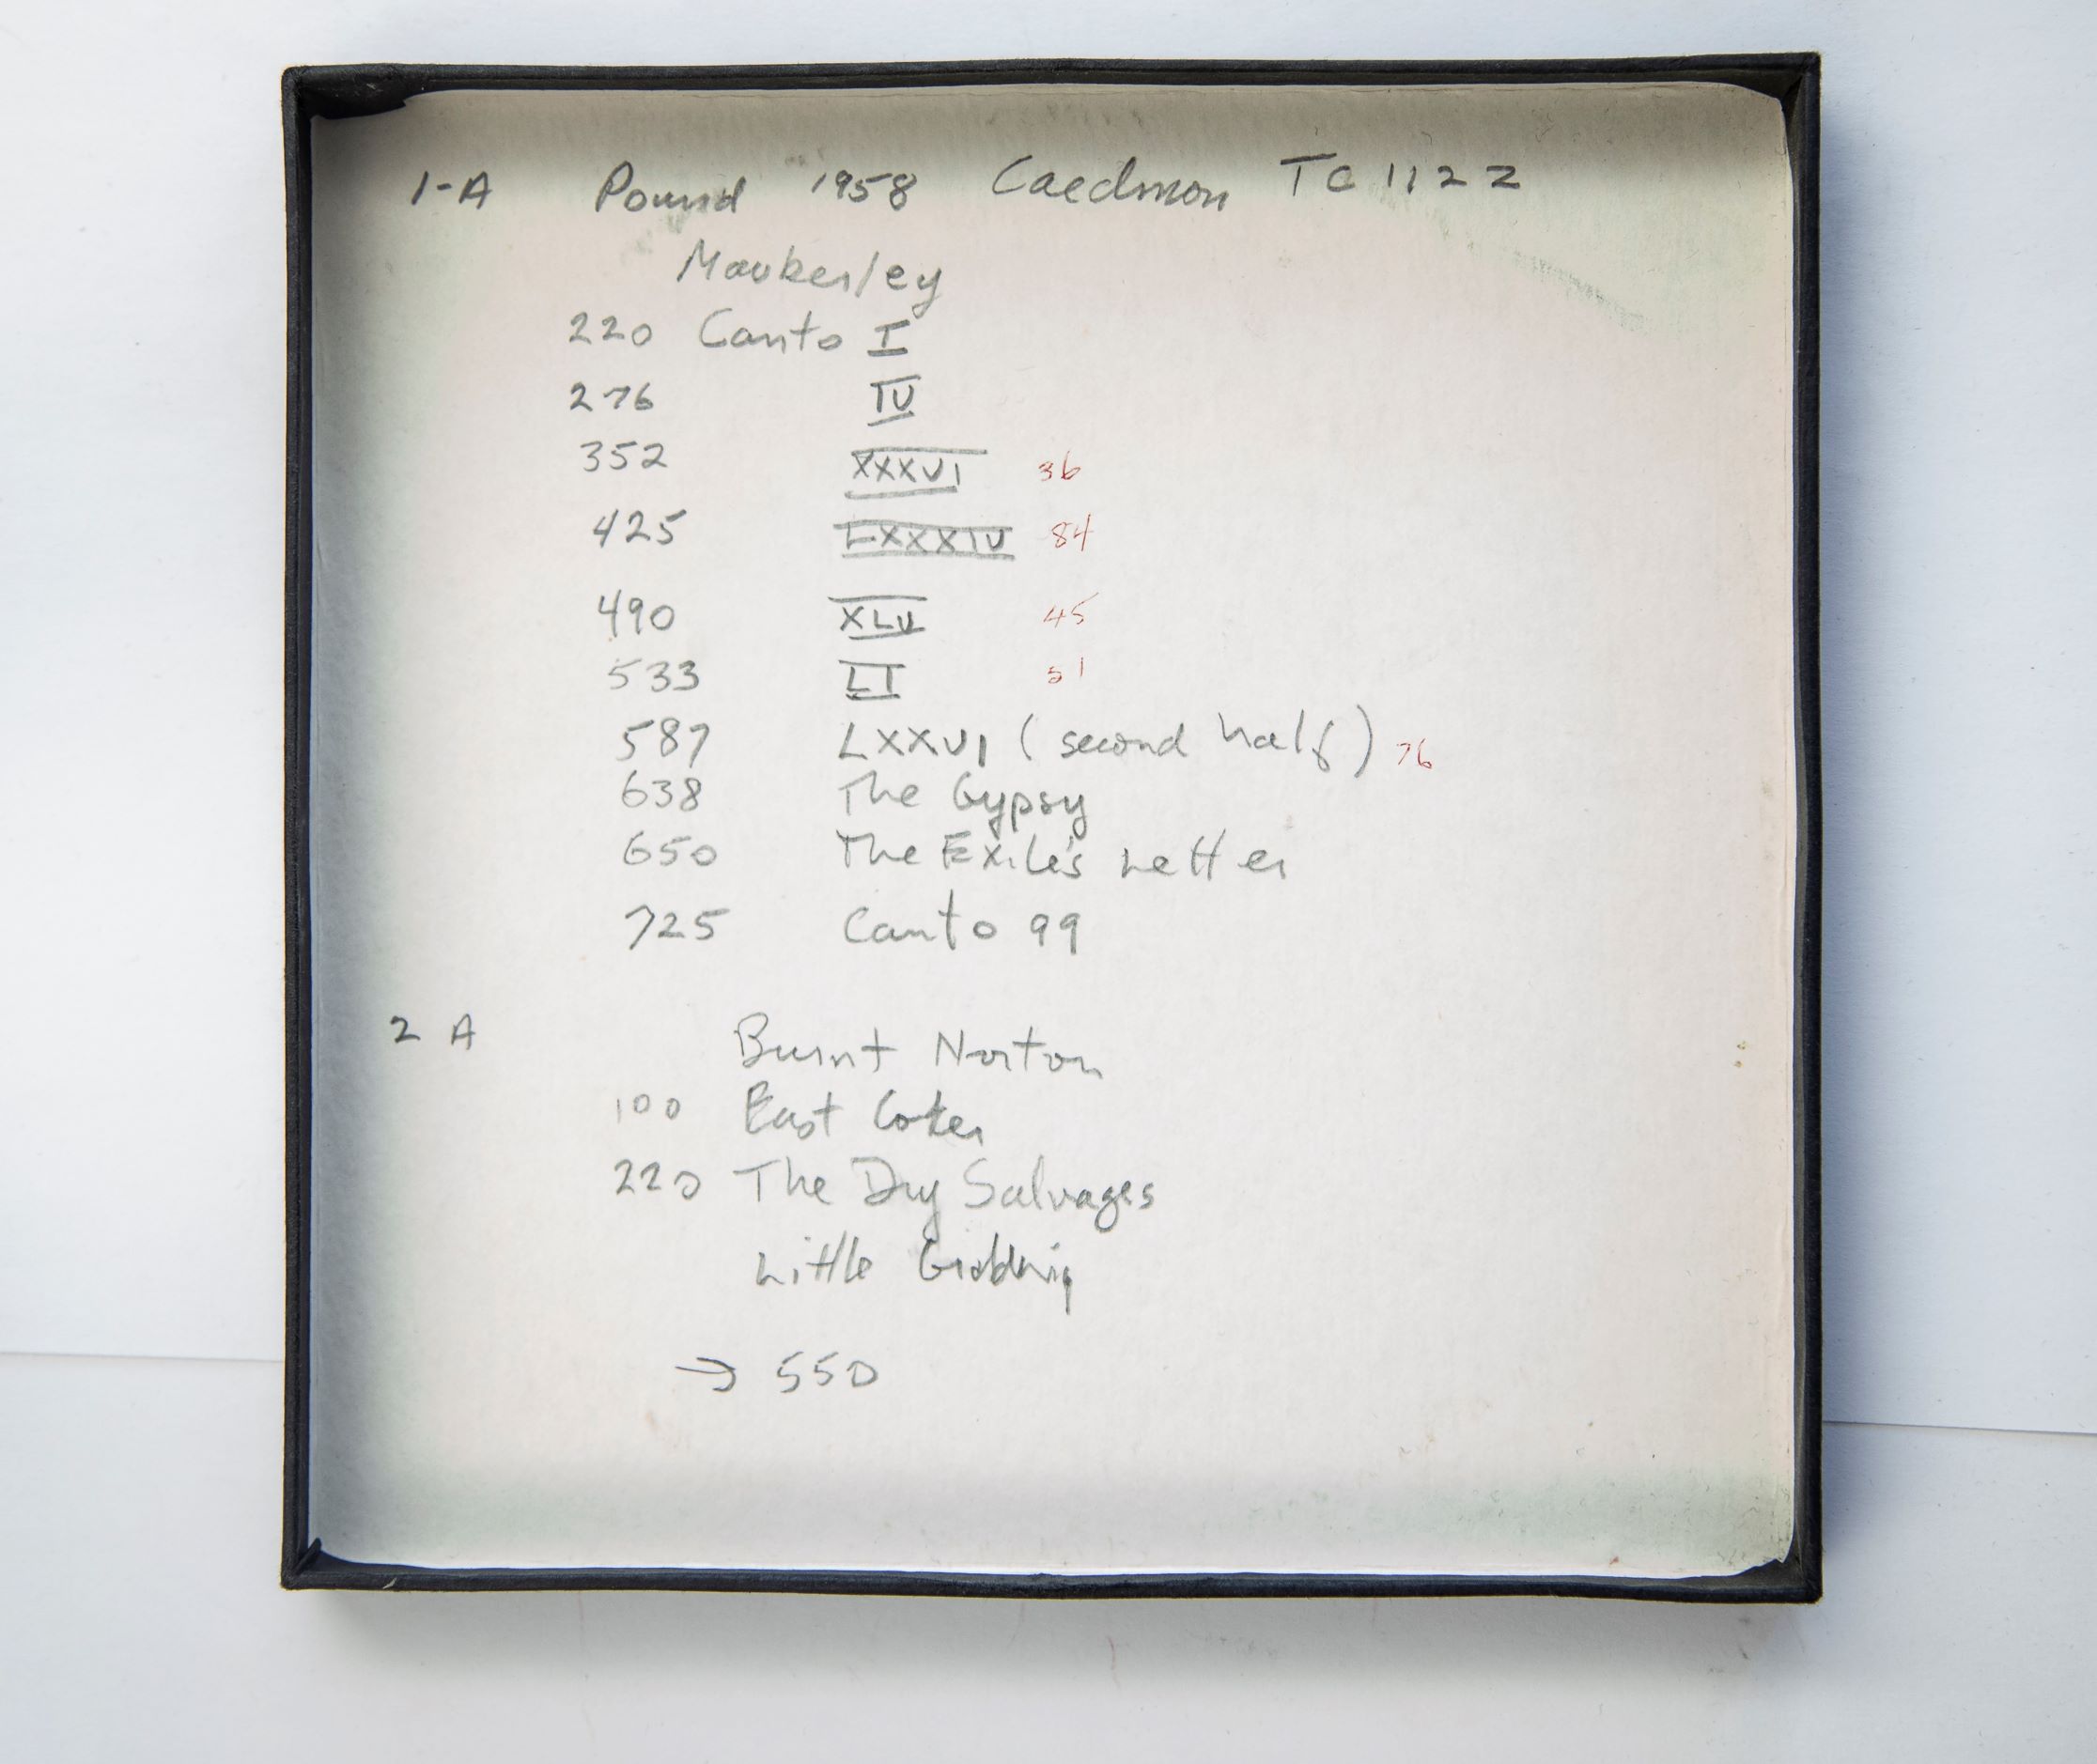 1-A Pound 1958 Caedmon TC 1122
Mauberley
220 Canto I
276 IV
352 XXXVI 36
425 LXXXIV 84
490 XLV 45
533 LI 51
587 LXXVI (second half) 76
638 The Gypsy
650 The Exile's Letter
725 Canto 99
2 A Burnt Norton
100 East Coker
220 The Dry Salvages
Little Gidding
→ 550